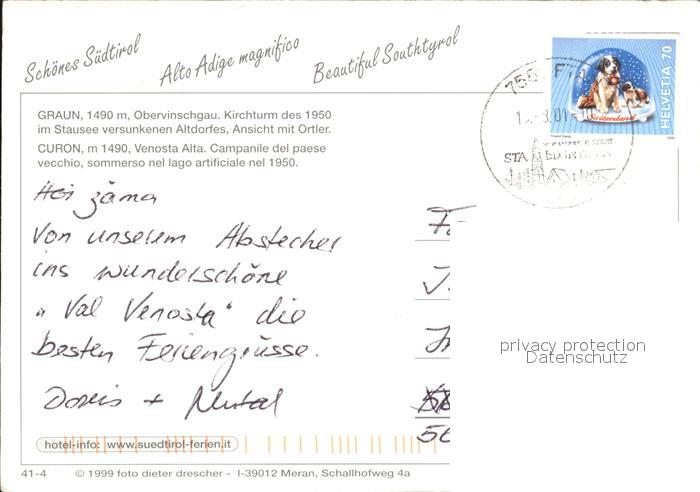 Schönes Südtirol
Alto Adige magnifico
Beautiful Southtyrol
HELVETIA 70
Switzerland
GRAUN, 1490 m, Obervinschgau. Kirchturm des 1950
im Stausee versunkenen Altdorfes, Ansicht mit Ortler.
CURON, m 1490, Venosta Alta. Campanile del paese
vecchio, sommerso nel lago artificiale nel 1950.
Hoi zäma
Von unserem Abstecher
ins wunderschöne
"Val Venosta" die
besten Feriengrüsse.
Doris +
privacy protection
Datenschutz
hotel-info: www.suedtirol-ferien.it
41-4 © 1999 foto dieter drescher - I-39012 Meran, Schallhofweg 4a